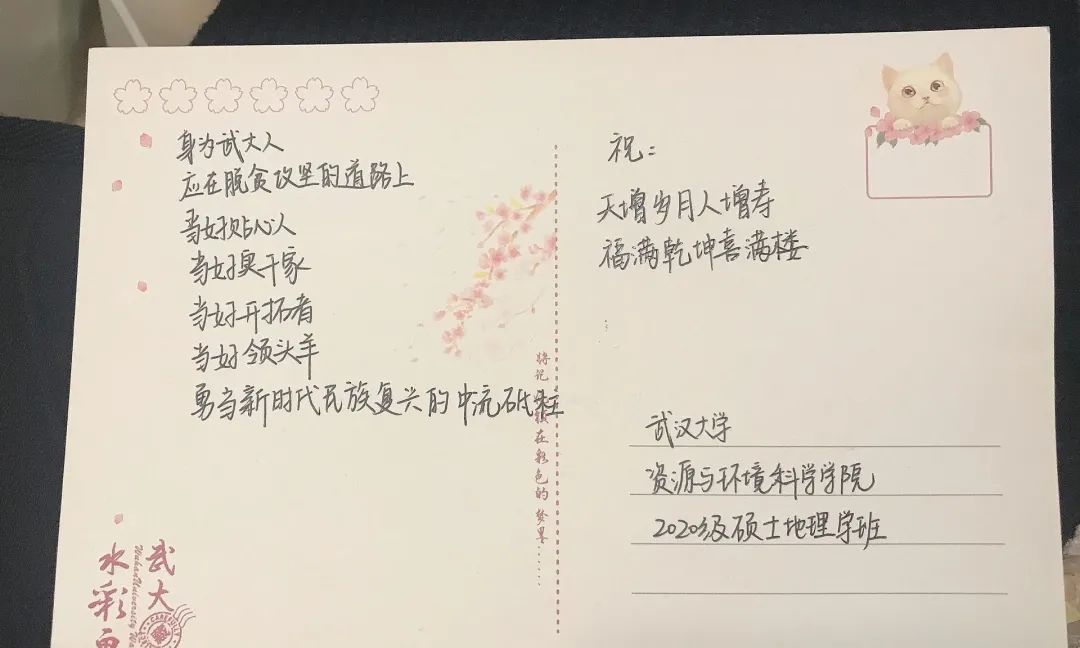 身为武大人
应在脱贫攻坚的道路上
当好贴心人
当好实干家
当好开拓者
当好领头羊
勇当新时代民族复兴的中流砥柱
祝：
天增岁月人增寿
福满乾坤喜满楼
武汉大学
资源与环境科学学院
2020级硕士地理学班
将记 在彩色的梦里......
武大
水彩
Wuhan University
CAREFULLY